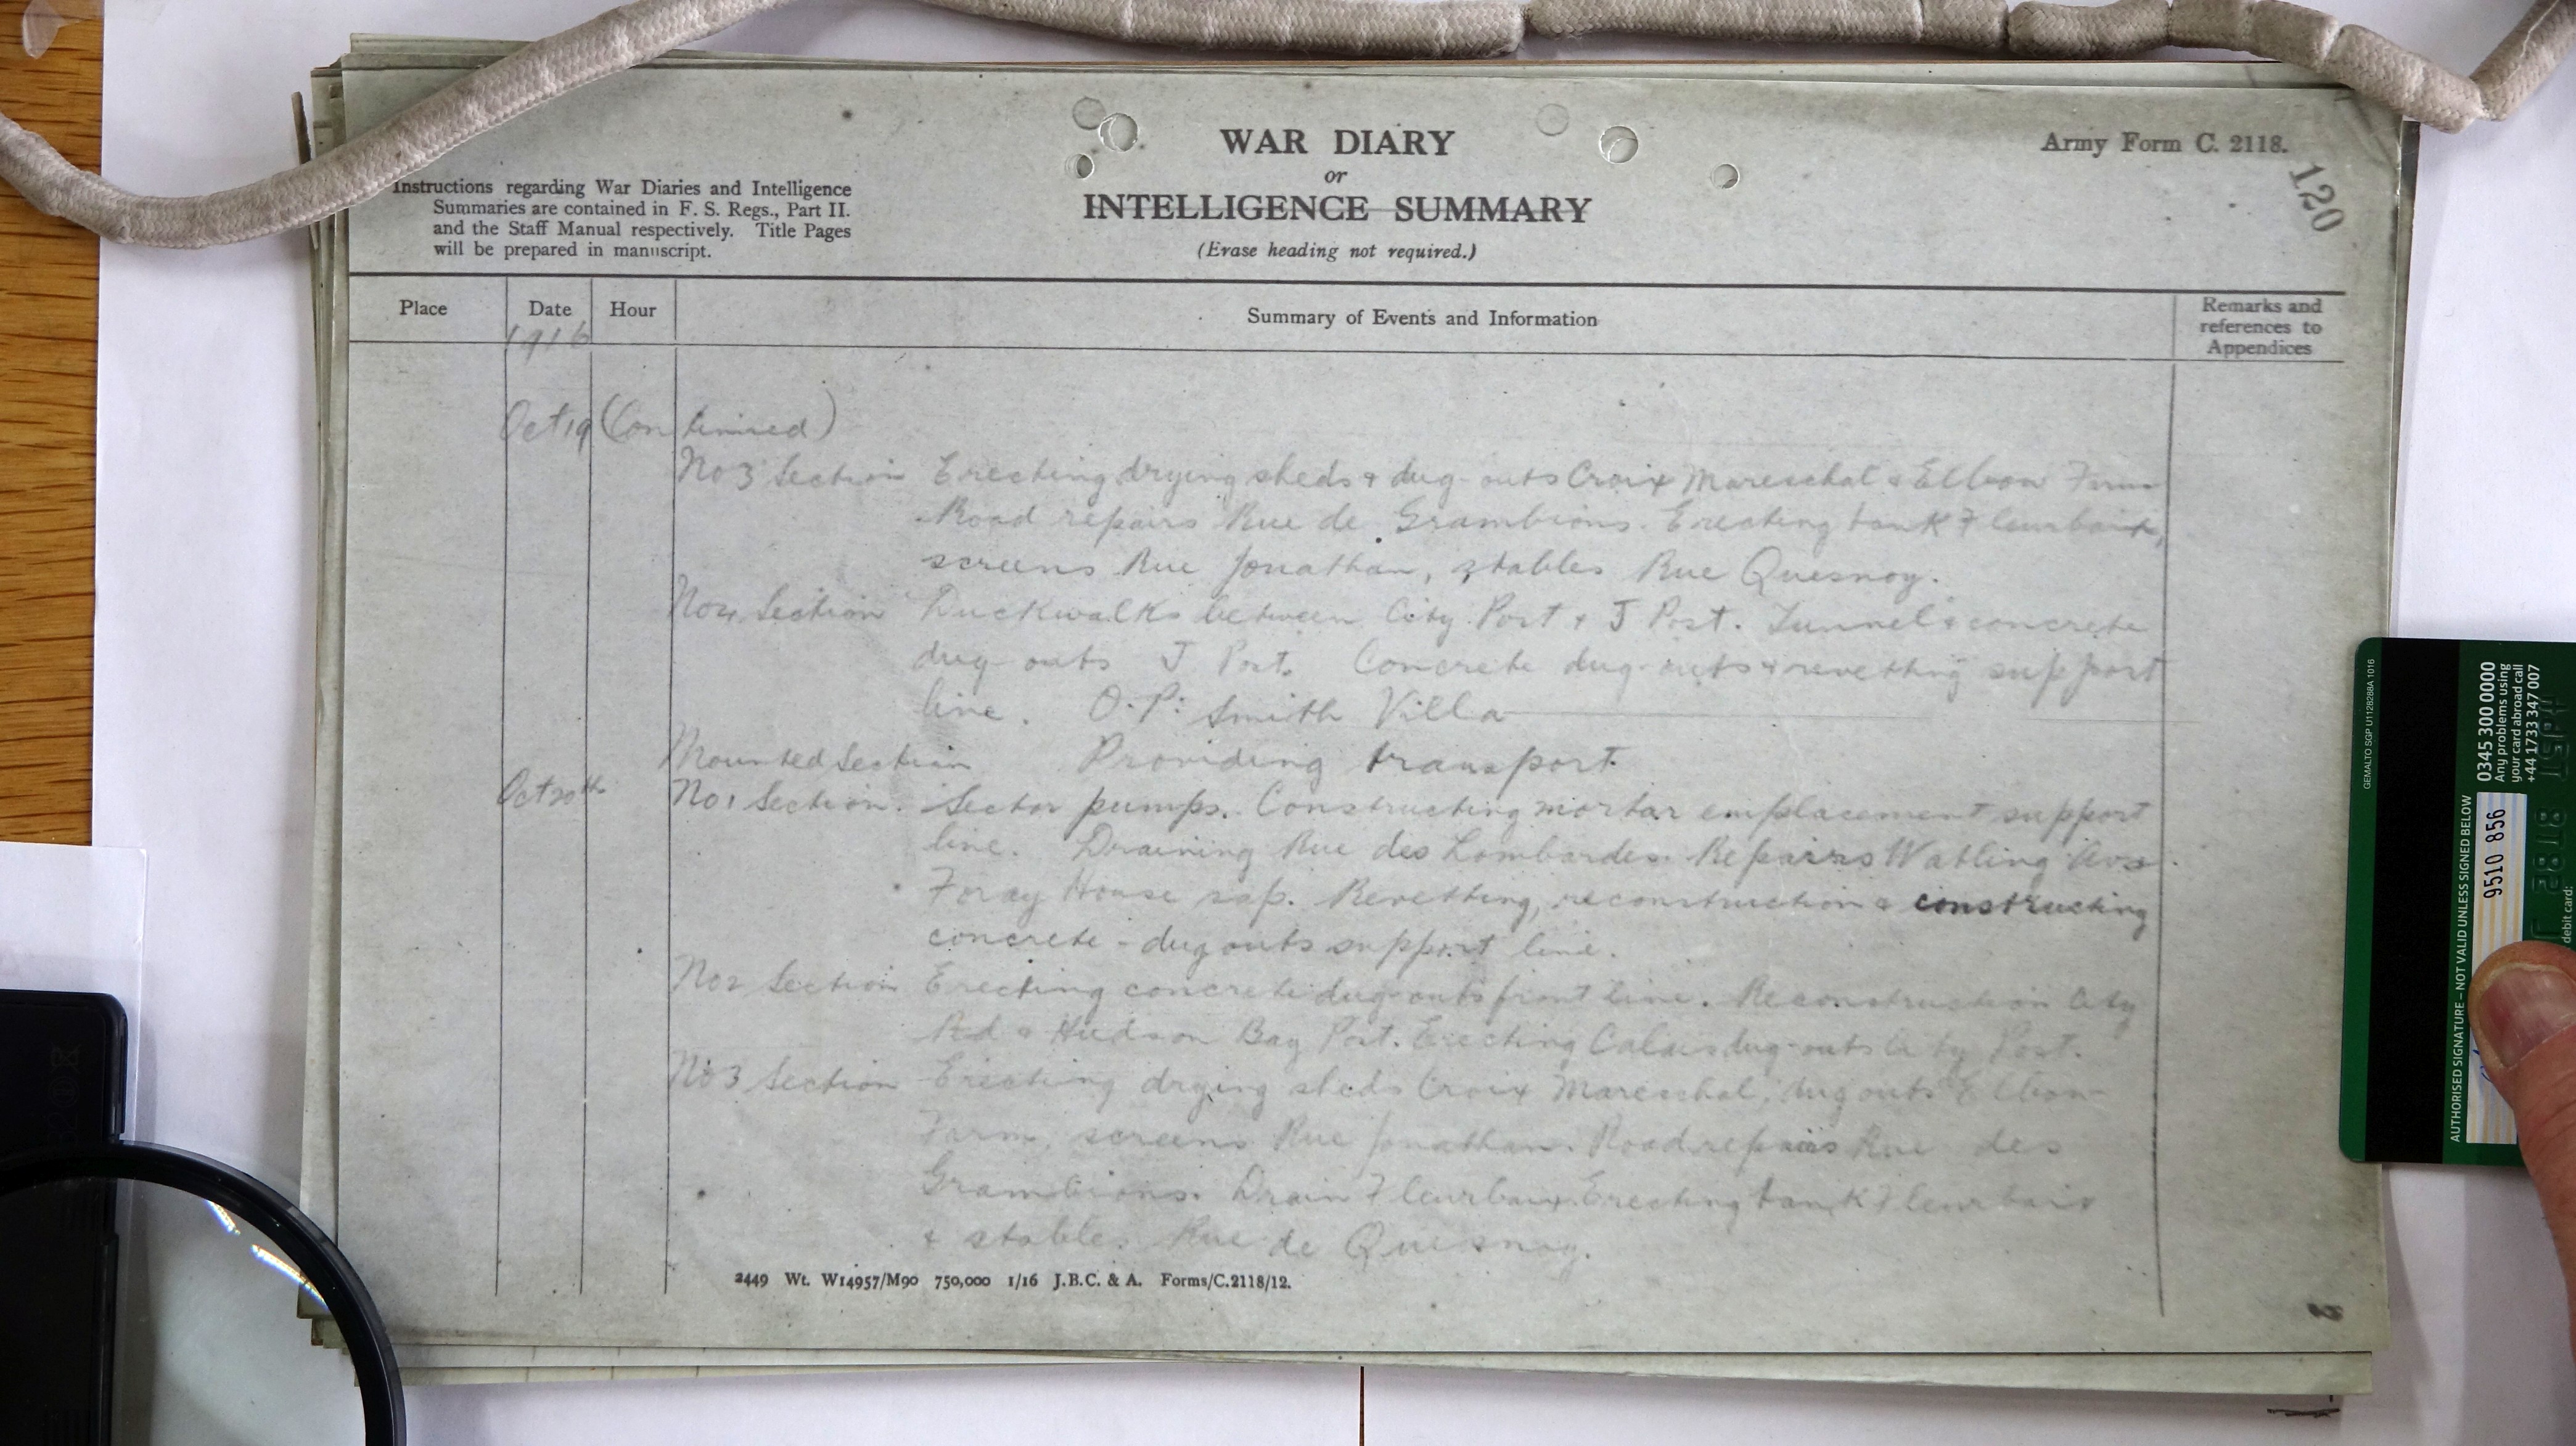 WAR DIARY
or
INTELLIGENCE SUMMARY
(Erase heading not required.)
Army Form C. 2118.
120
Instructions regarding War Diaries and Intelligence
Summaries are contained in F. S. Regs., Part II.
and the Staff Manual respectively. Title Pages
will be prepared in manuscript.
Place
Date
Hour
Summary of Events and Information
Remarks and
references to
Appendices
1916
Oct 19 (Continued)
No 3 Section Erecting drying sheds & dug-outs Croix Mareschal & Elbow Farm
Road repairs Rue de Grambions. Erecting tank Fleurbaix,
screens Rue Jonathan, stables Rue Quesnoy.
No 4 Section Duckwalks between City Post & J Post. Tunnel & concrete
dug-outs J Post. Concrete dug-outs & revetting support
line. O.P: Smith Villa
Mounted Section Providing transport
Oct 20th No 1 Section. Sector pumps. Constructing mortar emplacement support
line. Draining Rue des Lombardes. Repairs Watling Ave.
Foray House sap. Revetting, reconstruction & constructing
concrete-dug outs support line.
No 2 Section Erecting concrete dug-outs front line. Reconstruction City
Rd & Hudson Bay Post. Erecting Calais dug-outs City Post.
No 3 Section Erecting drying sheds Croix Mareschal, dug outs Elbow
Farm, screens Rue Jonathan. Road repairs Rue des
Grambions. Drain Fleurbaix. Erecting tank Fleurbaix
& stable. Rue de Quesnoy.
2449 Wt. W14957/M90 750,000 1/16 J.B.C. & A. Forms/C.2118/12.
GEMALTO SGP U1128288A 1016
0345 300 0000
Any problems using
your card abroad call
+44 1733 347 007
AUTHORISED SIGNATURE – NOT VALID UNLESS SIGNED BELOW
9510 856
debit card: